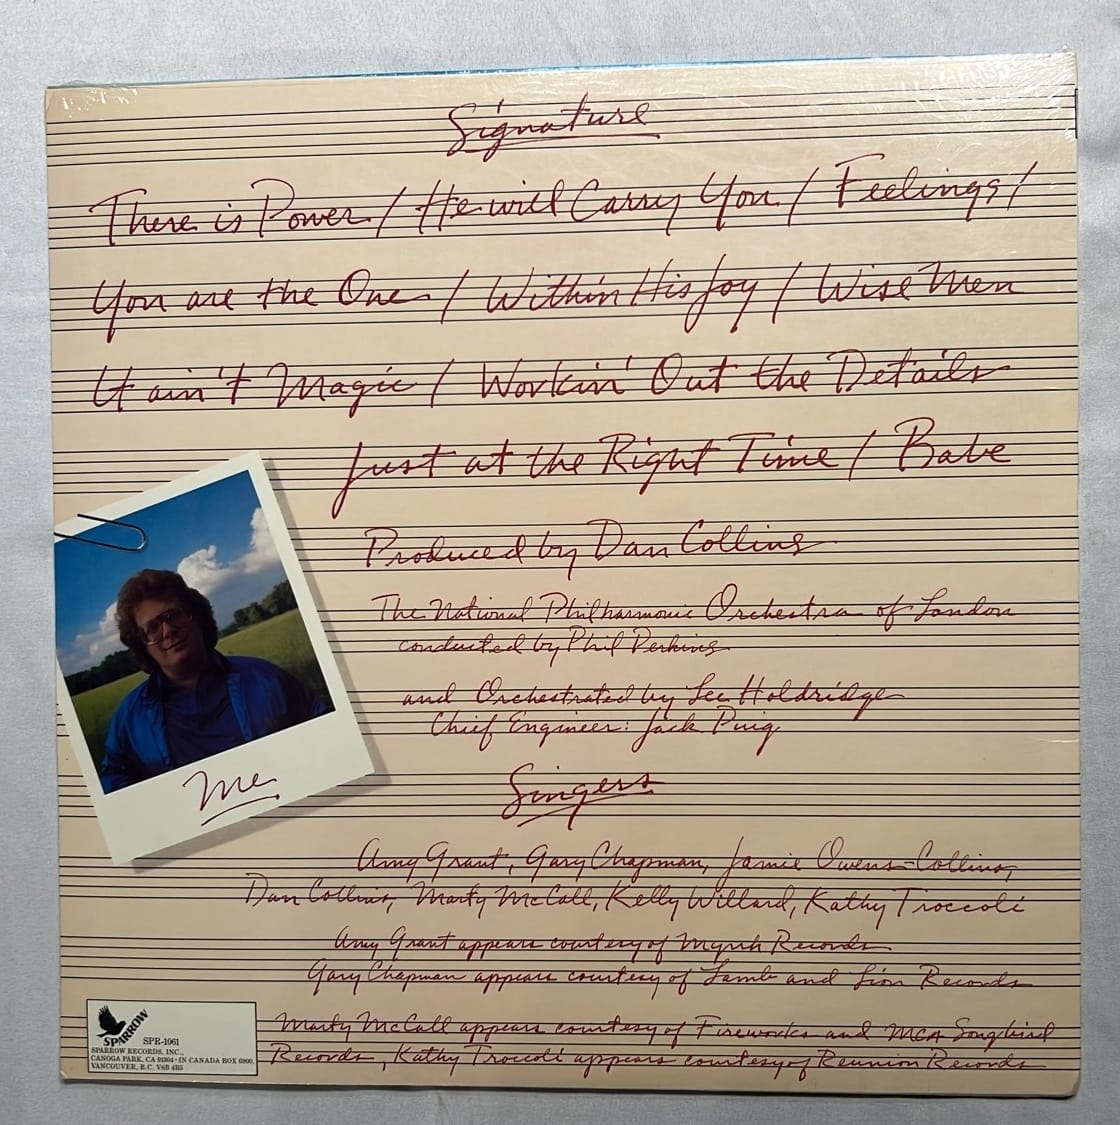 Signature
There is Power / He will Carry You / Feelings /
You are the One / Within His Joy / Wise Men
It ain't Magic / Workin' Out the Details
Just at the Right Time / Babe
Produced by Dan Collins
The National Philharmonic Orchestra of London
conducted by Phil Perkins
and Orchestrated by Lee Holdridge
Chief Engineer: Jack Puig
Me
Singers
Amy Grant, Gary Chapman, Jamie Owens-Collins,
Dan Collins, Marty McCall, Kelly Willard, Kathy Troccoli
Amy Grant appears courtesy of Myrrh Records
Gary Chapman appears courtesy of Lamb and Lion Records
Marty McCall appears courtesy of Fireworks and MCA Songbird
Records, Kathy Troccoli appears courtesy of Reunion Records
SPARROW
SPR-1061
SPARROW RECORDS, INC.,
CANOGA PARK, CA 91304 · IN CANADA BOX 6900,
VANCOUVER, B.C. V6B 4B5